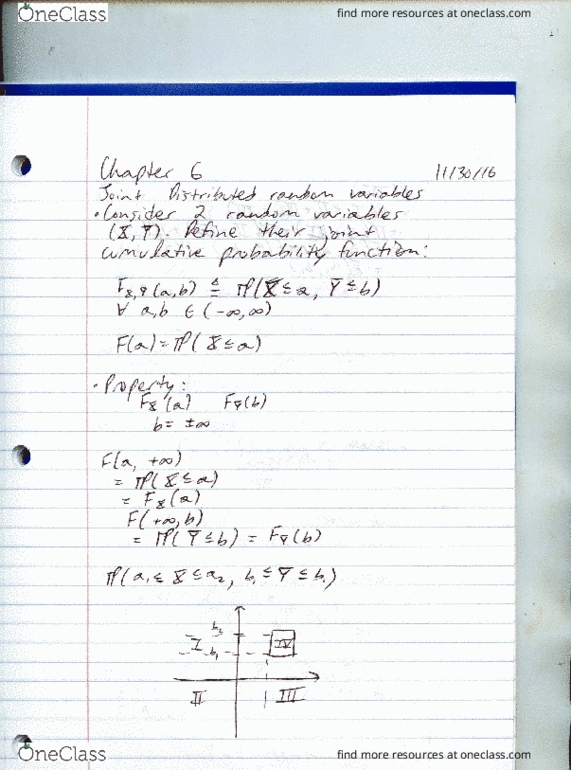 OneClass
find more resources at oneclass.com
Chapter 6
11/30/16
Joint Distributed random variables
• Consider 2 random variables
(X, Y). Define their joint
cumulative probability function:
F_X,Y (a,b) ≜ P(X ≤ a, Y ≤ b)
∀ a,b ∈ (-∞,∞)
F(a) = P(X ≤ a)
• Property:
F_X(a) F_Y(b)
b = ±∞
F(a, +∞)
= P(X ≤ a)
= F_X(a)
F(+∞, b)
= P(Y ≤ b) = F_Y(b)
P(a₁ ≤ X ≤ a₂, b₁ ≤ Y ≤ b₁)
b₂
I
IV
b₁
II
III
OneClass
find more resources at oneclass.com